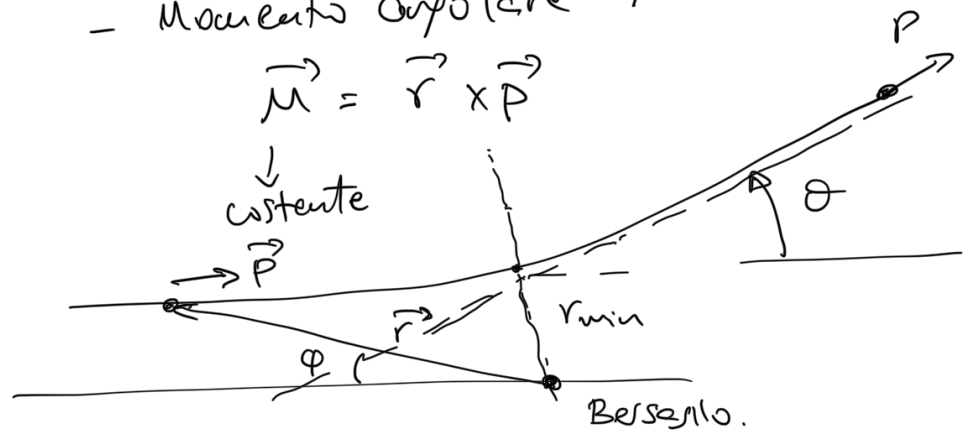 – Momento angolare
M⃗ = r⃗ × p⃗
↓
costante
p⃗
P
θ
r⃗
r min
φ
Bersaglio.